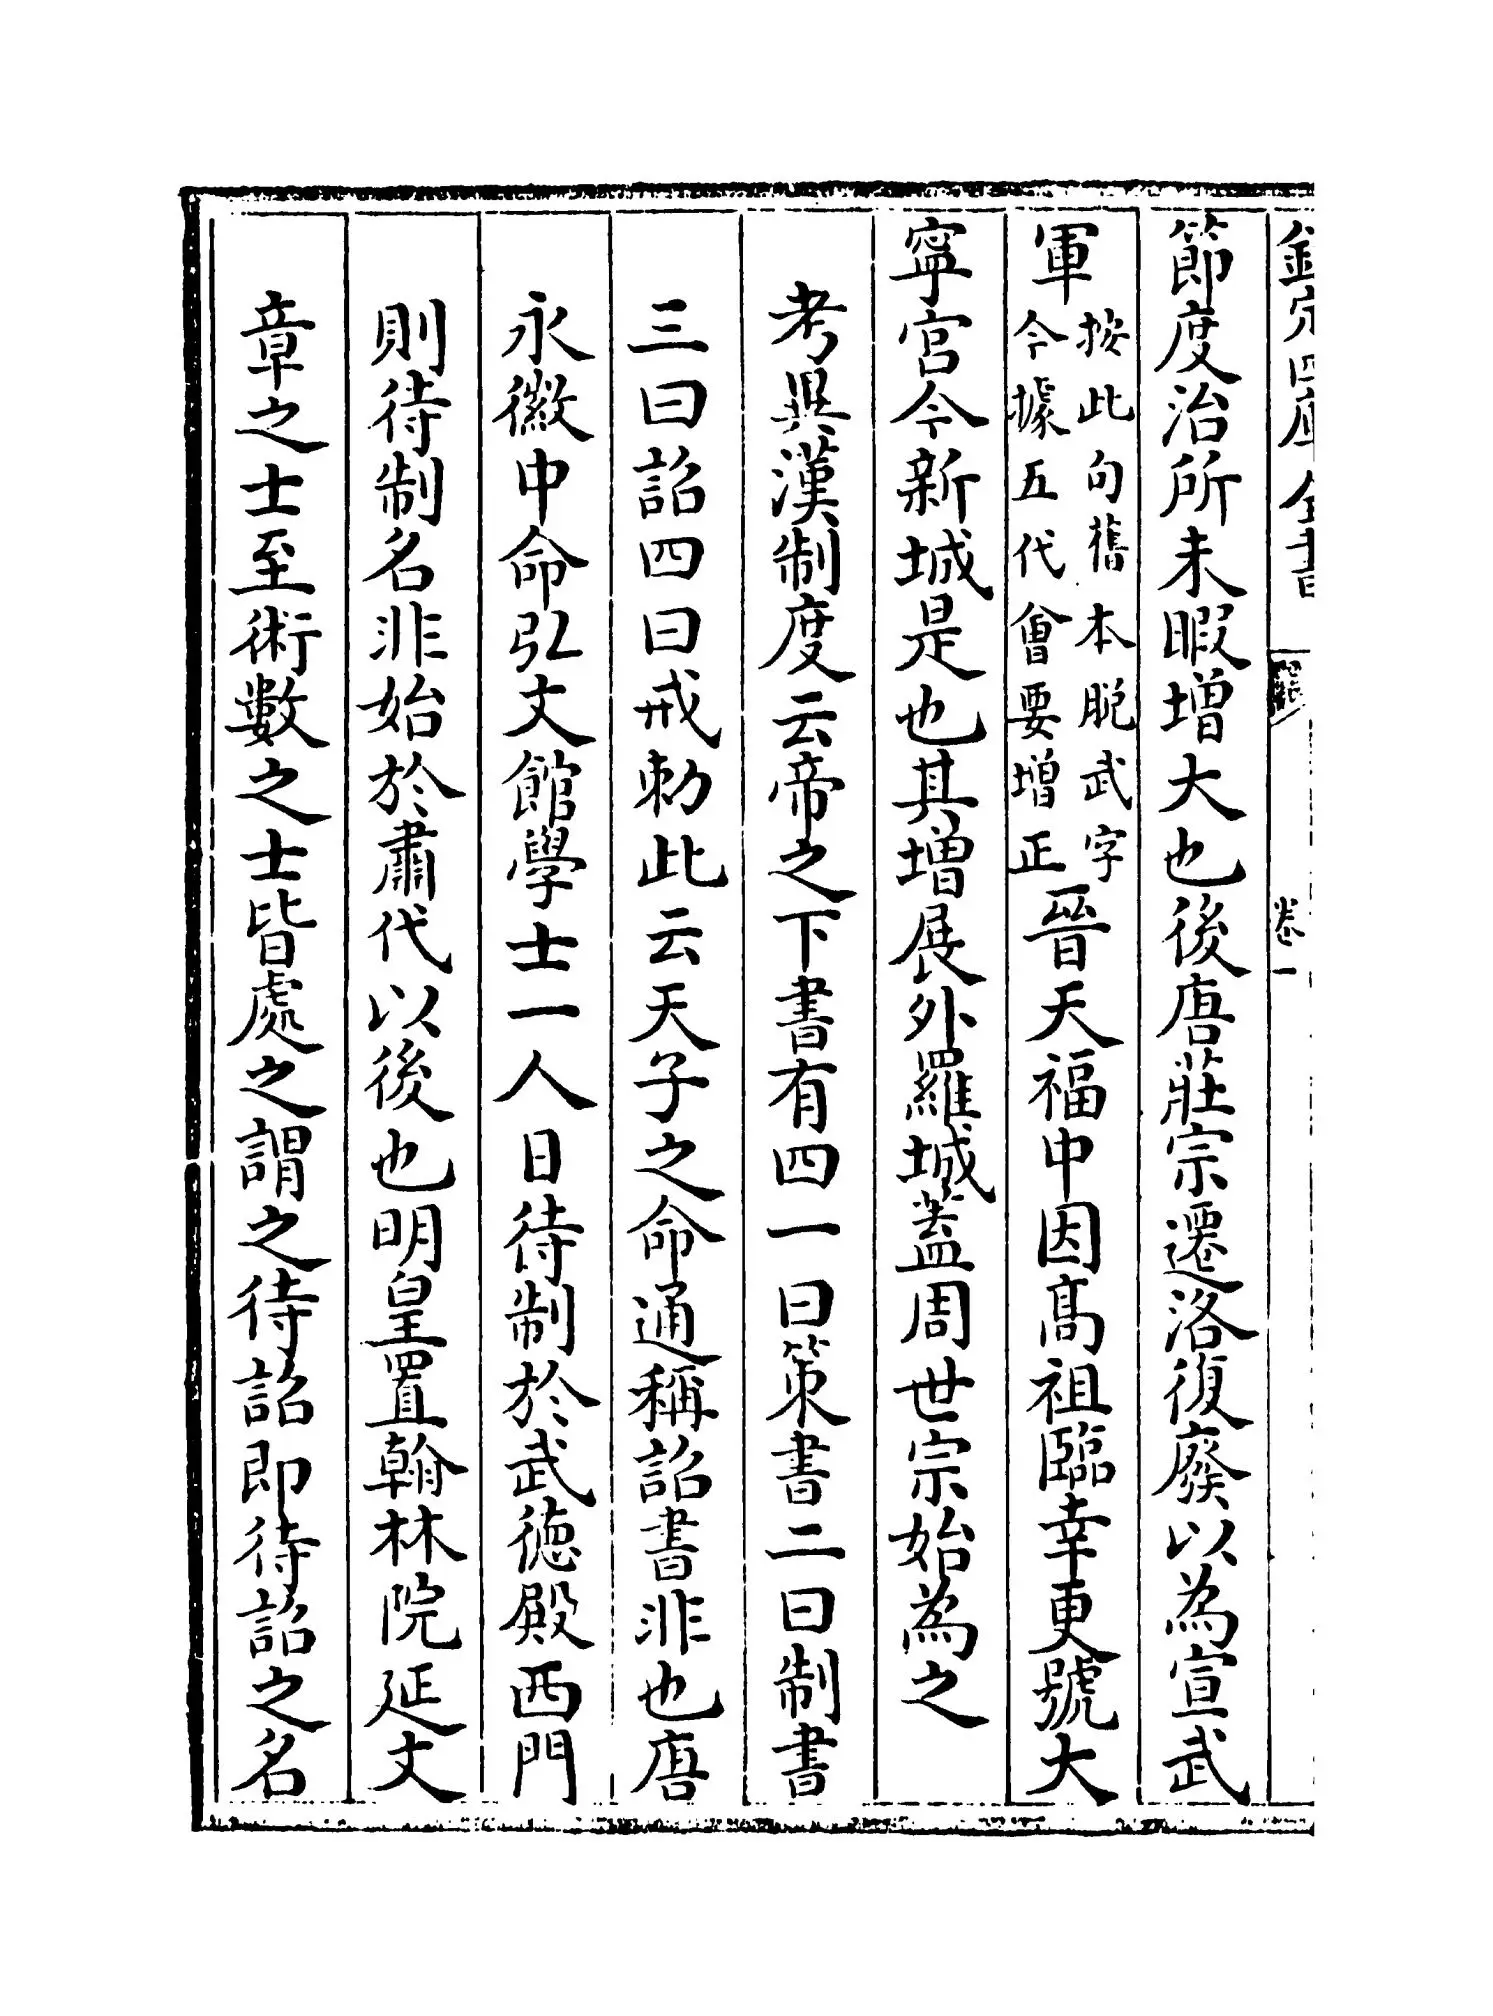 欽定四庫全書
卷一
節度治所未暇增大也後唐莊宗遷洛復廢以為宣武
軍按此句舊本脫武字今據五代會要增正晉天福中因髙祖臨幸更號大
寧宫今新城是也其增展外羅城蓋周世宗始為之
考異漢制度云帝之下書有四一曰策書二曰制書
三曰詔四曰戒勅此云天子之命通稱詔書非也唐
永徽中命弘文館學士一人日待制於武德殿西門
則待制名非始於肅代以後也明皇置翰林院延文
章之士至術數之士皆處之謂之待詔即待詔之名